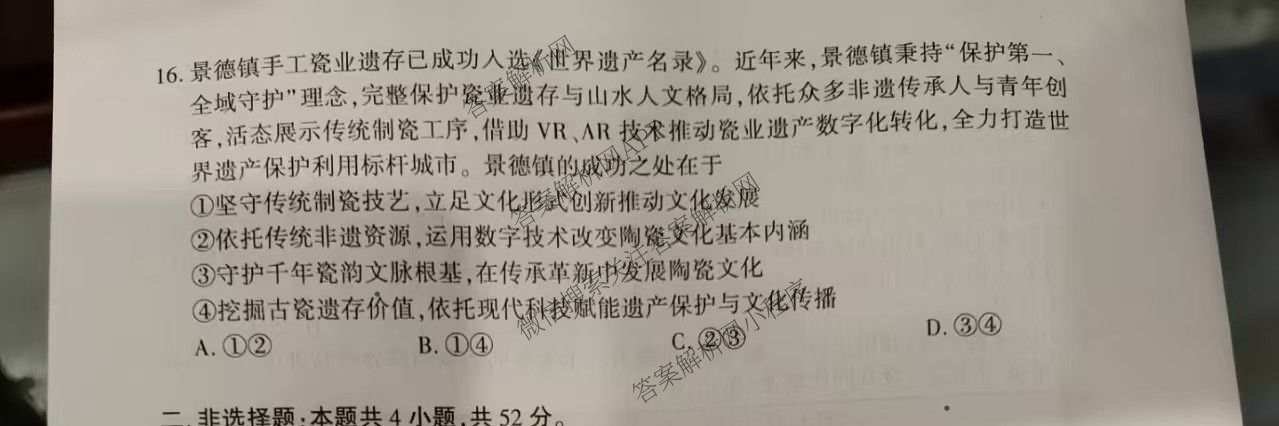 16. 景德镇手工瓷业遗存已成功入选《世界遗产名录》。近年来,景德镇秉持“保护第一、
全域守护”理念,完整保护瓷业遗存与山水人文格局,依托众多非遗传承人与青年创
客,活态展示传统制瓷工序,借助 VR、AR 技术推动瓷业遗产数字化转化,全力打造世
界遗产保护利用标杆城市。景德镇的成功之处在于
①坚守传统制瓷技艺,立足文化形式创新推动文化发展
②依托传统非遗资源,运用数字技术改变陶瓷文化基本内涵
③守护千年瓷韵文脉根基,在传承革新中发展陶瓷文化
④挖掘古瓷遗存价值,依托现代科技赋能遗产保护与文化传播
A. ①②
B. ①④
C. ②③
D. ③④
二、非选择题:本题共 4 小题,共 52 分。
答案解析网
答案解析网APP
微信搜索关注答案解析网
答案解析网小程序